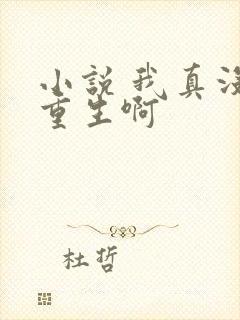 小説我真沒
重生啊
杜哲